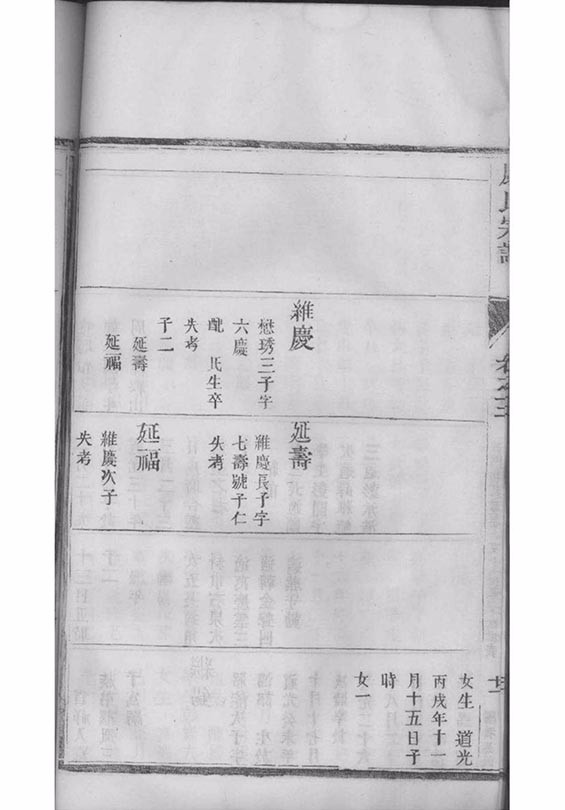 氏宗譜
卷之三
維慶
懋琇三子字
六慶
配 氏生卒
失考
子二
延壽
延福
延壽
維慶長子字
七壽號子仁
失考
延福
維慶次子
失考
女生 道光
丙戌年十一
月十五日子
時
女一